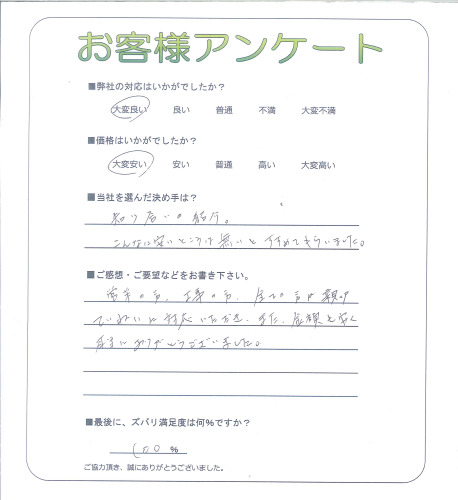 お客様アンケート
■弊社の対応はいかがでしたか？
大変良い 良い 普通 不満 大変不満
■価格はいかがでしたか？
大変安い 安い 普通 高い 大変高い
■当社を選んだ決め手は？
知り合いの紹介。
こんなに安いところは無いとすすめてもらいました。
■ご感想・ご要望などをお書き下さい。
営業の方、工事の方、全ての方が親切
ていねいに対応いただき、また、金額も安く
本当にありがとうございました。
■最後に、ズバリ満足度は何%ですか？
100 %
ご協力頂き、誠にありがとうございました。